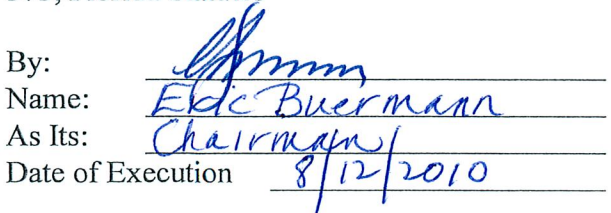 By:
Name: Eric Buermann
As Its: Chairman
Date of Execution 8/12/2010